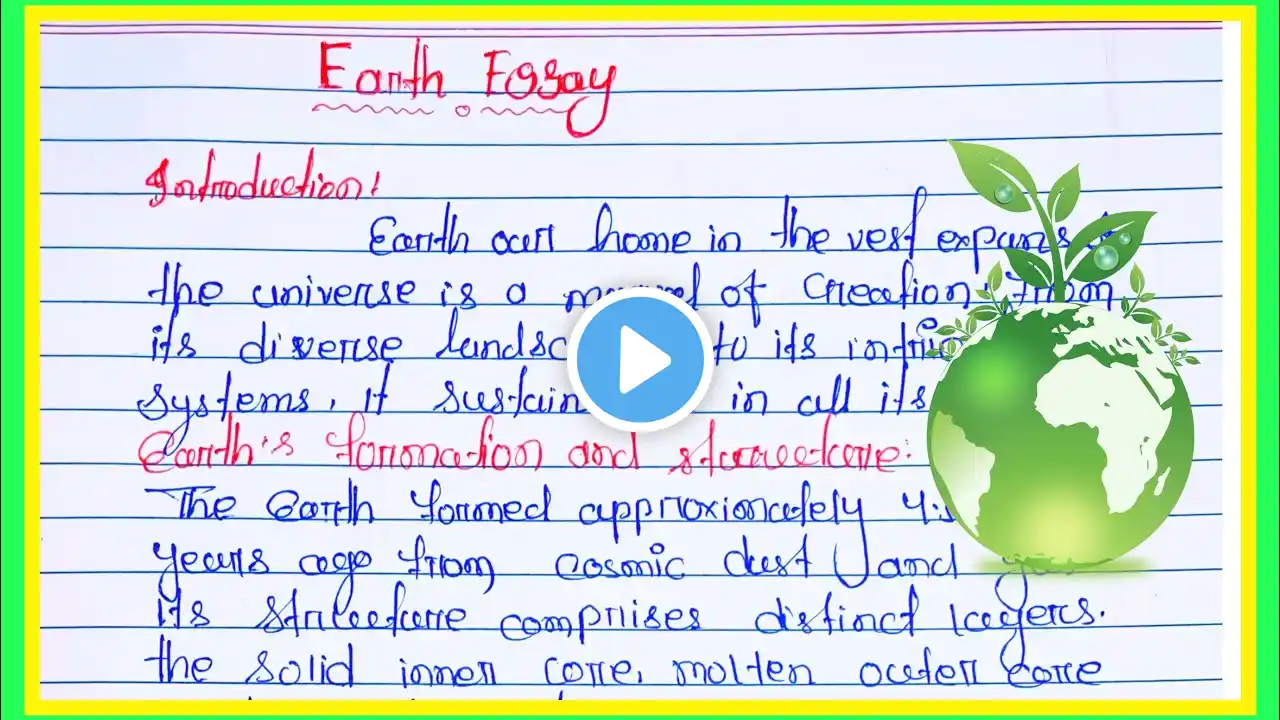 Earth Essay
Introduction:
Earth our home in the vest
the universe is a of creation. From
its diverse to its
systems. it in all its
Earth's formation and structure:
The Earth formed approximately
years ago from cosmic dust and
its structure comprises distinct layers.
the solid inner core, molten outer core